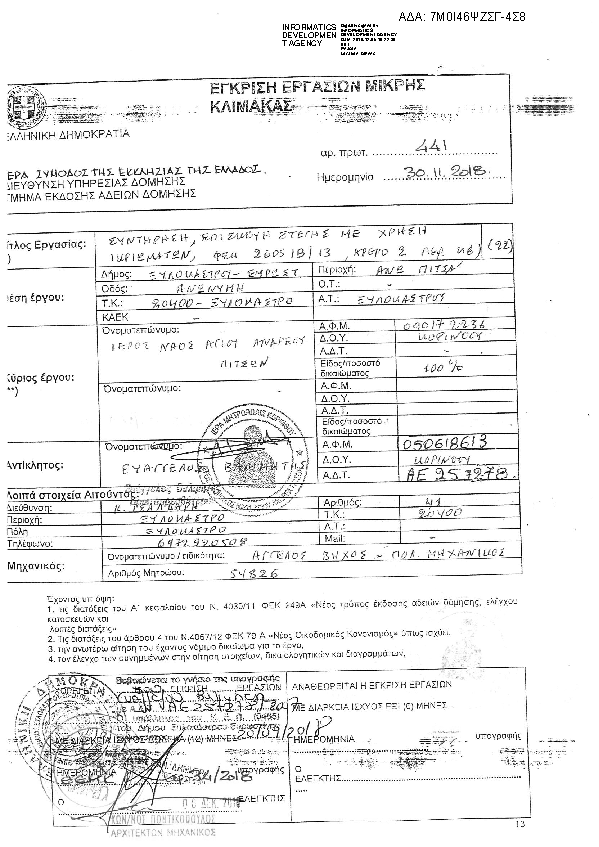 ΑΔΑ: 7Μ0Ι46ΨΖΣΓ-4Σ8
INFORMATICS
DEVELOPMEN
T AGENCY
ΕΓΚΡΙΣΗ ΕΡΓΑΣΙΩΝ ΜΙΚΡΗΣ
ΚΛΙΜΑΚΑΣ
ΕΛΛΗΝΙΚΗ ΔΗΜΟΚΡΑΤΙΑ
αρ. πρωτ. 441
ΙΕΡΑ ΣΥΝΟΔΟΣ ΤΗΣ ΕΚΚΛΗΣΙΑΣ ΤΗΣ ΕΛΛΑΔΟΣ
ΔΙΕΥΘΥΝΣΗ ΥΠΗΡΕΣΙΑΣ ΔΟΜΗΣΗΣ
Ημερομηνία 30.11.2018
ΤΜΗΜΑ ΕΚΔΟΣΗΣ ΑΔΕΙΩΝ ΔΟΜΗΣΗΣ
Τίτλος Εργασίας: ΣΥΝΤΗΡΗΣΗ, ΕΠΙΣΚΕΥΗ ΣΤΕΓΗΣ ΜΕ ΧΡΗΣΗ
ΙΚΡΙΩΜΑΤΩΝ, ΦΕΚ 2605/Β/13, ΑΡΘΡΟ 2 (22)
Δήμος: ΞΥΛΟΚΑΣΤΡΟΥ-ΕΥΡΩΣΤ. Περιοχή: ΑΝΩ ΠΙΤΣΑ
Θέση έργου: Οδός: ΑΝΩΝΥΜΗ Ο.Τ.: -
Τ.Κ.: 20400-ΞΥΛΟΚΑΣΤΡΟ Α.Τ.: ΞΥΛΟΚΑΣΤΡΟΥ
ΚΑΕΚ -
Ονοματεπώνυμο: Α.Φ.Μ.
ΙΕΡΟΣ ΝΑΟΣ ΑΓΙΟΥ ΑΝΔΡΕΟΥ Δ.Ο.Υ. ΚΟΡΙΝΘΟΥ
ΠΙΤΣΩΝ Α.Δ.Τ. -
Κύριος έργου: Είδος/ποσοστό
δικαιώματος 100%
Ονοματεπώνυμο: Α.Φ.Μ.
Δ.Ο.Υ.
Α.Δ.Τ.
Είδος/ποσοστό
δικαιώματος
Ονοματεπώνυμο: Α.Φ.Μ. 050618613
Αντίκλητος: ΕΥΑΓΓΕΛΟΣ Δ.Ο.Υ. ΚΟΡΙΝΘΟΥ
Α.Δ.Τ. ΑΕ 257278
Λοιπά στοιχεία Αιτούντος:
Διεύθυνση: Αριθμός: 41
Περιοχή: ΞΥΛΟΚΑΣΤΡΟ Τ.Κ.: 20400
Πόλη ΞΥΛΟΚΑΣΤΡΟ Α.Τ.: -
Τηλέφωνο: 6972920508 Mail: -
Μηχανικός: Ονοματεπώνυμο / ειδικότητα: ΑΓΓΕΛΟΣ ΒΗΧΟΣ - ΠΟΛ. ΜΗΧΑΝΙΚΟΣ
Αριθμός Μητρώου: 54826
Έχοντας υπ όψη:
1. τις διατάξεις του Α' κεφαλαίου του Ν. 4030/11 ΦΕΚ 249Α «Νέος τρόπος έκδοσης αδειών δόμησης, ελέγχου
κατασκευών και
λοιπές διατάξεις»
2. Τις διατάξεις του άρθρου 4 του Ν.4067/12 ΦΕΚ 79 Α «Νέος Οικοδομικός Κανονισμός» όπως ισχύει.
3. την ανωτέρω αίτηση του έχοντος νόμιμο δικαίωμα για το έργο,
4. τον έλεγχο των συνημμένων στην αίτηση στοιχείων, δικαιολογητικών και διαγραμμάτων,
Βεβαιώνεται το γνήσιο της υπογραφής
ΑΝΑΘΕΩΡΕΙΤΑΙ Η ΕΓΚΡΙΣΗ ΕΡΓΑΣΙΩΝ
ΜΕ ΔΙΑΡΚΕΙΑ ΙΣΧΥΟΣ ΕΞΙ (6) ΜΗΝΕΣ
ΗΜΕΡΟΜΗΝΙΑ υπογραφής
ΗΜΕΡΟΜΗΝΙΑ υπογραφής
Ο
ΕΛΕΓΚΤΗΣ
Ο ΕΛΕΓΚΤΗΣ
ΚΩΝ/ΝΟΣ ΠΟΝΤΙΚΟΠΟΥΛΟΣ
ΑΡΧΙΤΕΚΤΩΝ ΜΗΧΑΝΙΚΟΣ
13